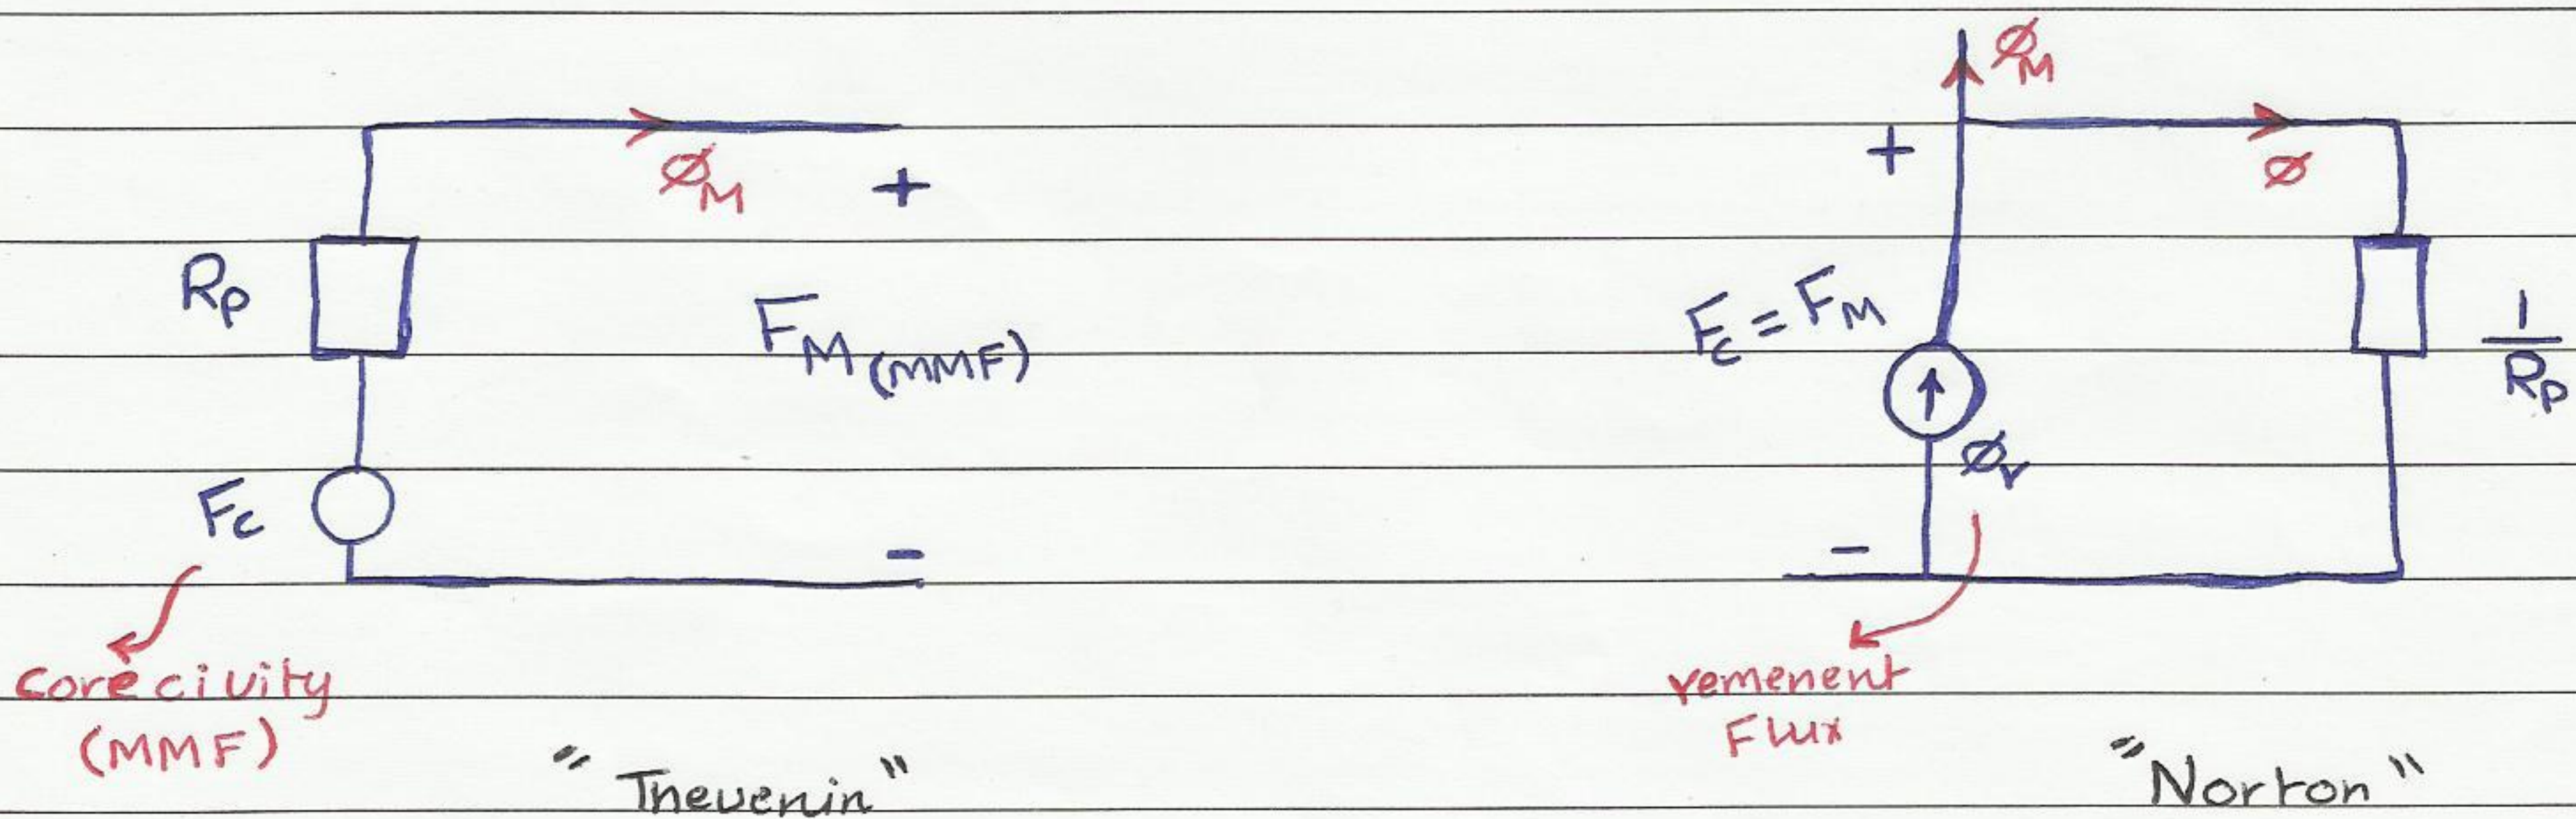 ØM
+
Rp
FM (MMF)
Fc
-
corecivity
(MMF)
"Thevenin"
ØM
+
Ø
Fc = FM
1/Rp
Ør
-
remenent
Flux
"Norton"